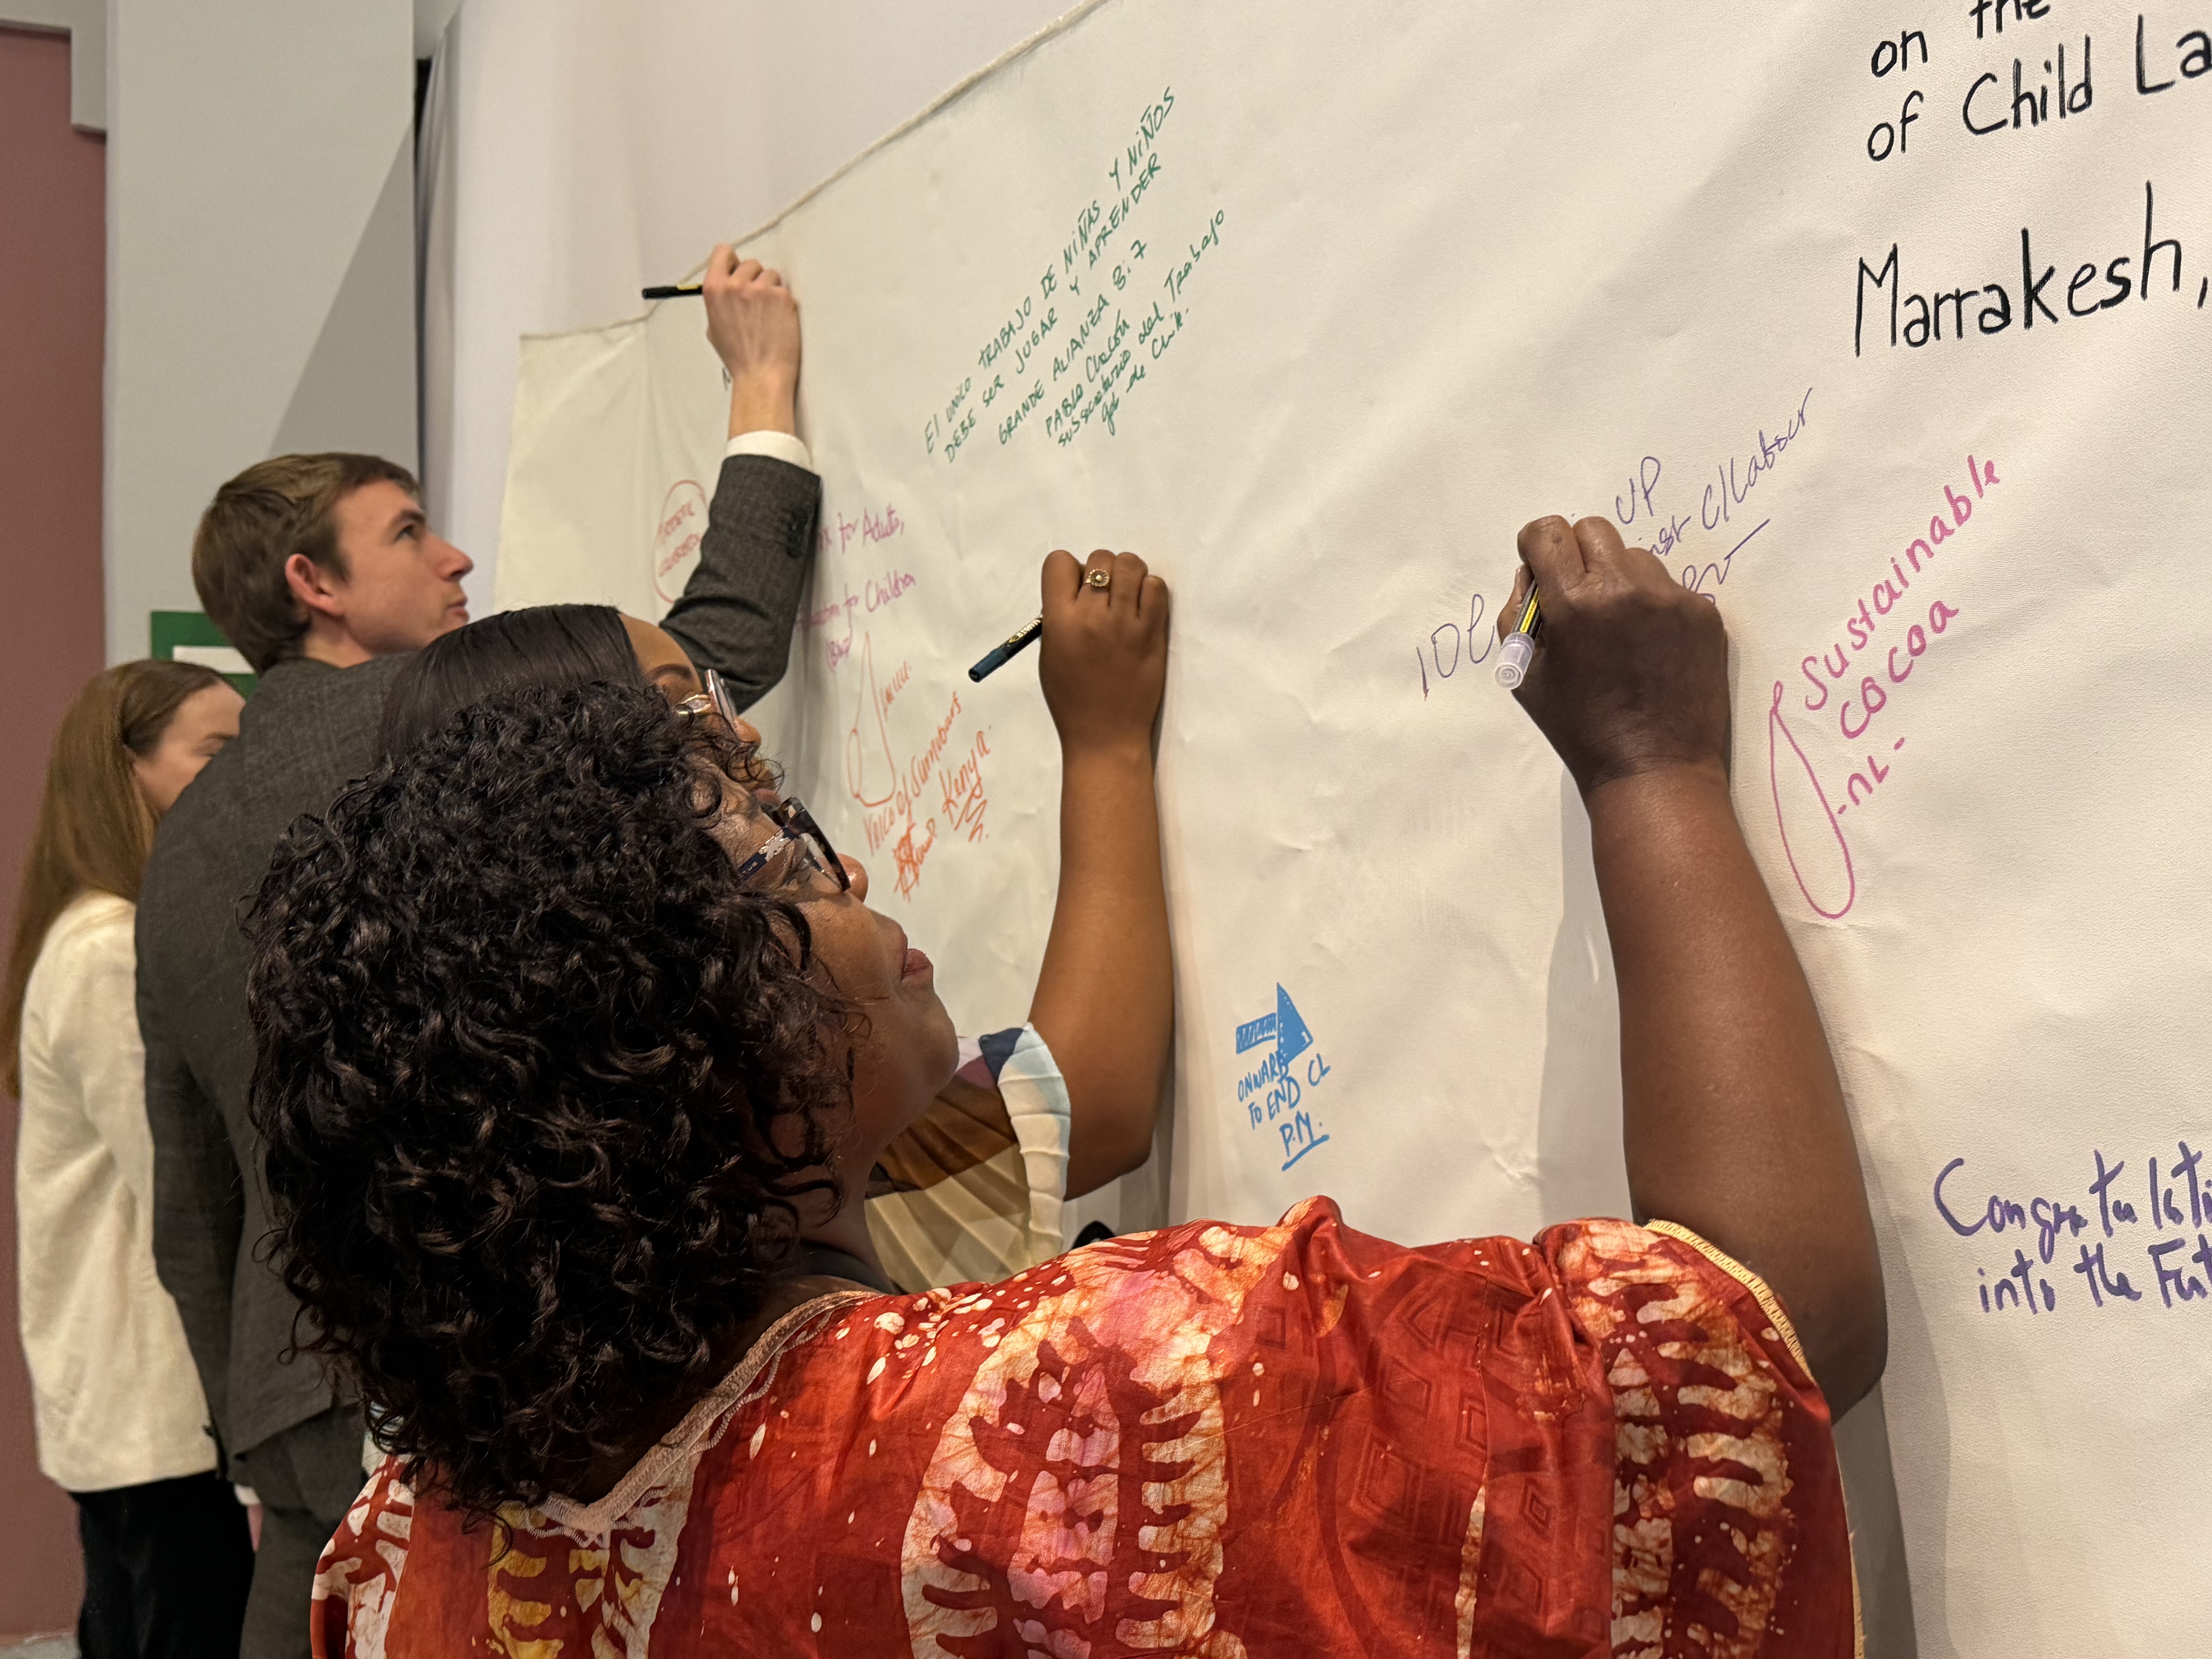 on the
of Child La
Marrakesh,
El UNICO TRABAJO DE NIÑAS Y NIÑOS
DEBE SER JUGAR Y APRENDER
GRANDE ALIANZA 8.7
PABLO
subsecretario del Trabajo
de Chile.
for Adults,
for Children
Voice of
Kenya
UP
C/Labour
Sustainable
COCOA
-NL-
ONWARD
TO END CL
P.M.
Congratulati
into the Fut